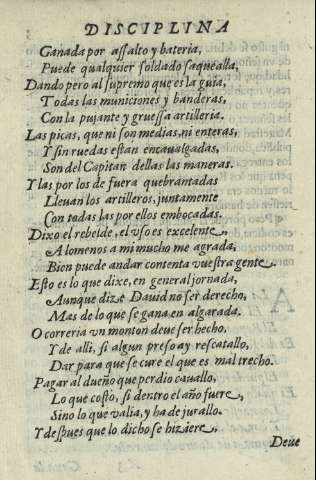 DISCIPLINA
Ganada por assalto y bateria,
Puede qualquier soldado saquealla,
Dando pero al supremo que es la guia,
Todas las municiones y banderas,
Con la pujante y gruessa artilleria.
Las picas, que ni son medias, ni enteras,
Y sin ruedas estan encaualgadas,
Son del Capitan dellas las maneras.
Y las por los de fuera quebrantadas
Lleuan los artilleros, juntamente
Con todas las por ellos embocadas.
Dixo el rebelde, el vso es excelente,
A lo menos a mi mucho me agrada,
Bien puede andar contenta vuestra gente.
Esto es lo que dixe, en general jornada,
Aunque dize Dauid no ser derecho,
Mas de lo que se gana en algarada.
O correria vn monton deue ser hecho,
Y de alli, si algun preso ay rescatallo,
Dar para que se cure el que es mal trecho.
Pagar al dueño que perdio cauallo,
Lo que costo, si dentro el año fuere,
Sino lo que valia, y ha de jurallo.
Y despues que lo dicho se hiziere,
Deue